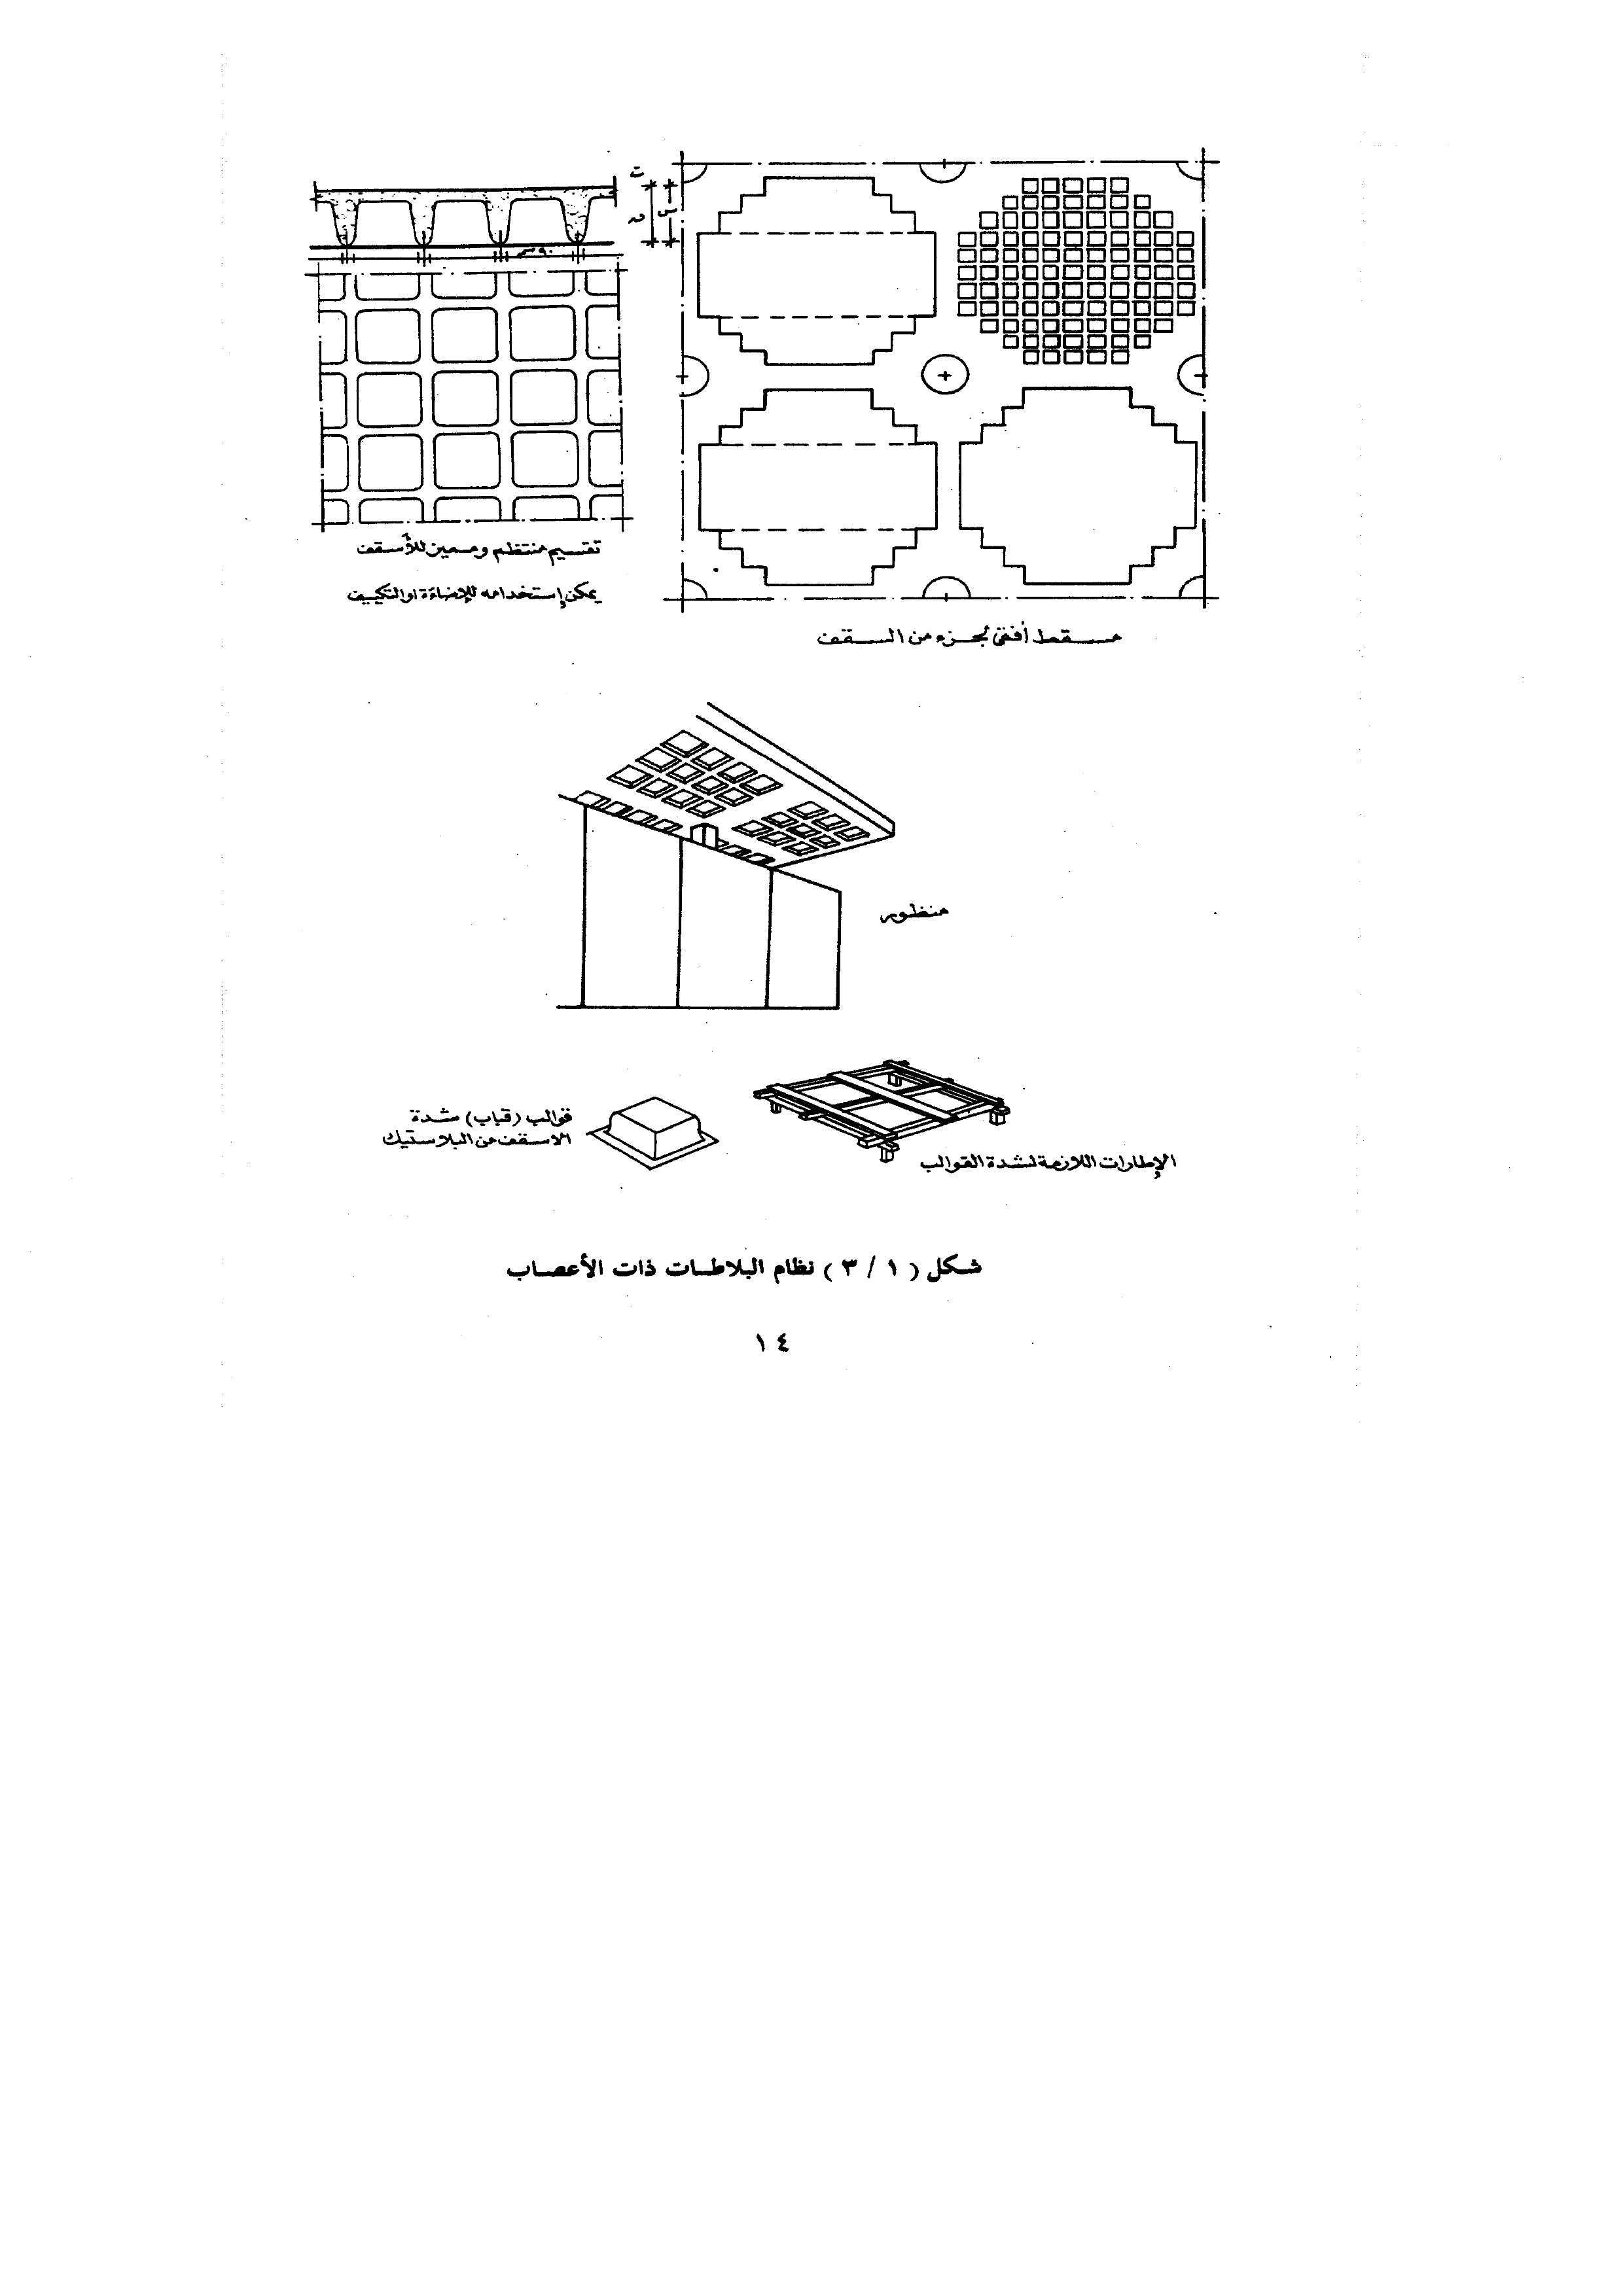 ت
س
تقسيم منتظم ومميز للأسقف
يمكن إستخدامه للإضاءة او التكييف
مسقط أفقى لجزء من السقف
منظور
قوالب (قباب) شدة
الاسقف من البلاستيك
الإطارات اللازمة لشدة القوالب
شكل ( ١ / ٣ ) نظام البلاطات ذات الأعصاب
١٤